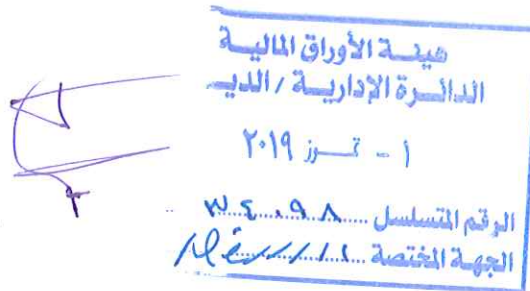 هيئة الأوراق المالية
الدائرة الإدارية / الديـ
١ - تمـوز ٢٠١٩
الرقم المتسلسل ٣٤٠٩٨
الجهة المختصة